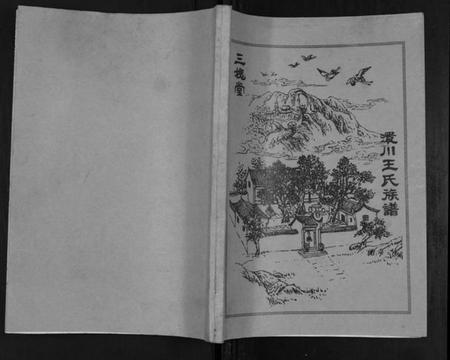 三槐堂
澴川王氏族譜